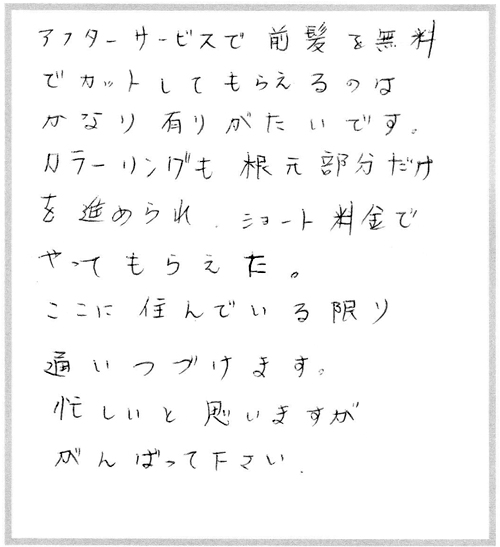 アフターサービスで前髪を無料
でカットしてもらえるのは
かなり有りがたいです。
カラーリングも根元部分だけ
を進められ、ショート料金で
やってもらえた。
ここに住んでいる限り
通いつづけます。
忙しいと思いますが
がんばって下さい.